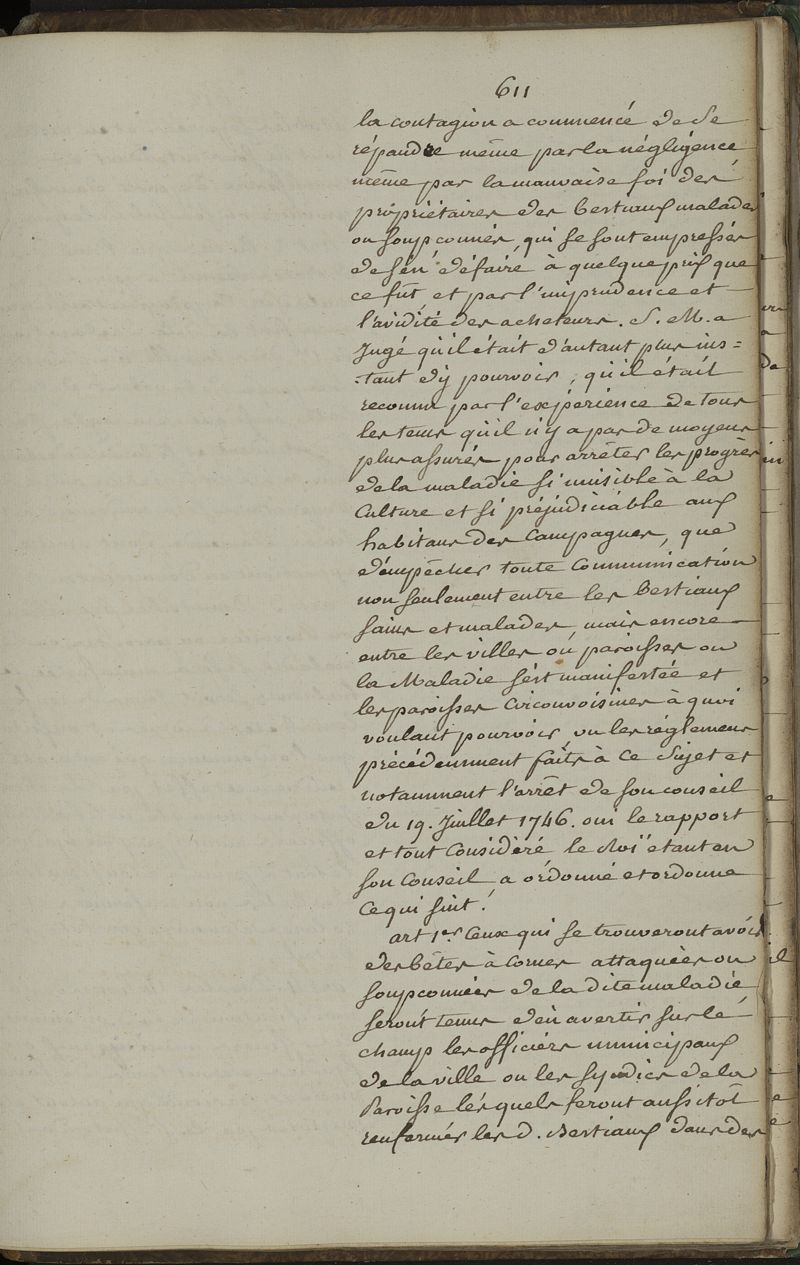 611
la contagion a commencé de se
répandre même par la négligence
même par la mauvaise foi des
propriétaires des bestiaux malades
ou soupçonnés, qui se sont empressés
de s'en défaire à quelque prix que
ce fût, et par l'imprudence et
l'avidité des acheteurs. S. M. a
Jugé qu'il était d'autant plus ins=
=tant d'y pourvoir, qu'il était
reconnu par l'expérience de tous
les tems qu'il n'y a pas de moyens
plus assurés pour arrêter les progrès
de la maladie si nuisible à la
Culture et si préjudiciable aux
habitans des Campagnes, que
d'empêcher toute Communication
non seulement entre les bestiaux
sains et malades, mais encore
entre les villes ou paroisses ou
la Maladie s'est manifestée et
les paroisses Circonvoisines à quoi
voulant pourvoir, vu les réglemens
précédemment faits à ce Sujet et
notamment l'arrêt de son conseil
du 19. Juillet 1746. oui le rapport
et tout Considéré le Roi étant en
son Conseil a ordonné et ordonne
Ce qui suit.
art 1er Ceux qui se trouveront avoir
des bêtes à Cornes attaquées ou
soupconnées de la dite maladie
seront tenus d'en avertir sur le
champ les officiers municipaux
de la ville ou les Syndics de la
Paroisse lesquels feront aussitôt
renfermés les d. Bestiaux dans des